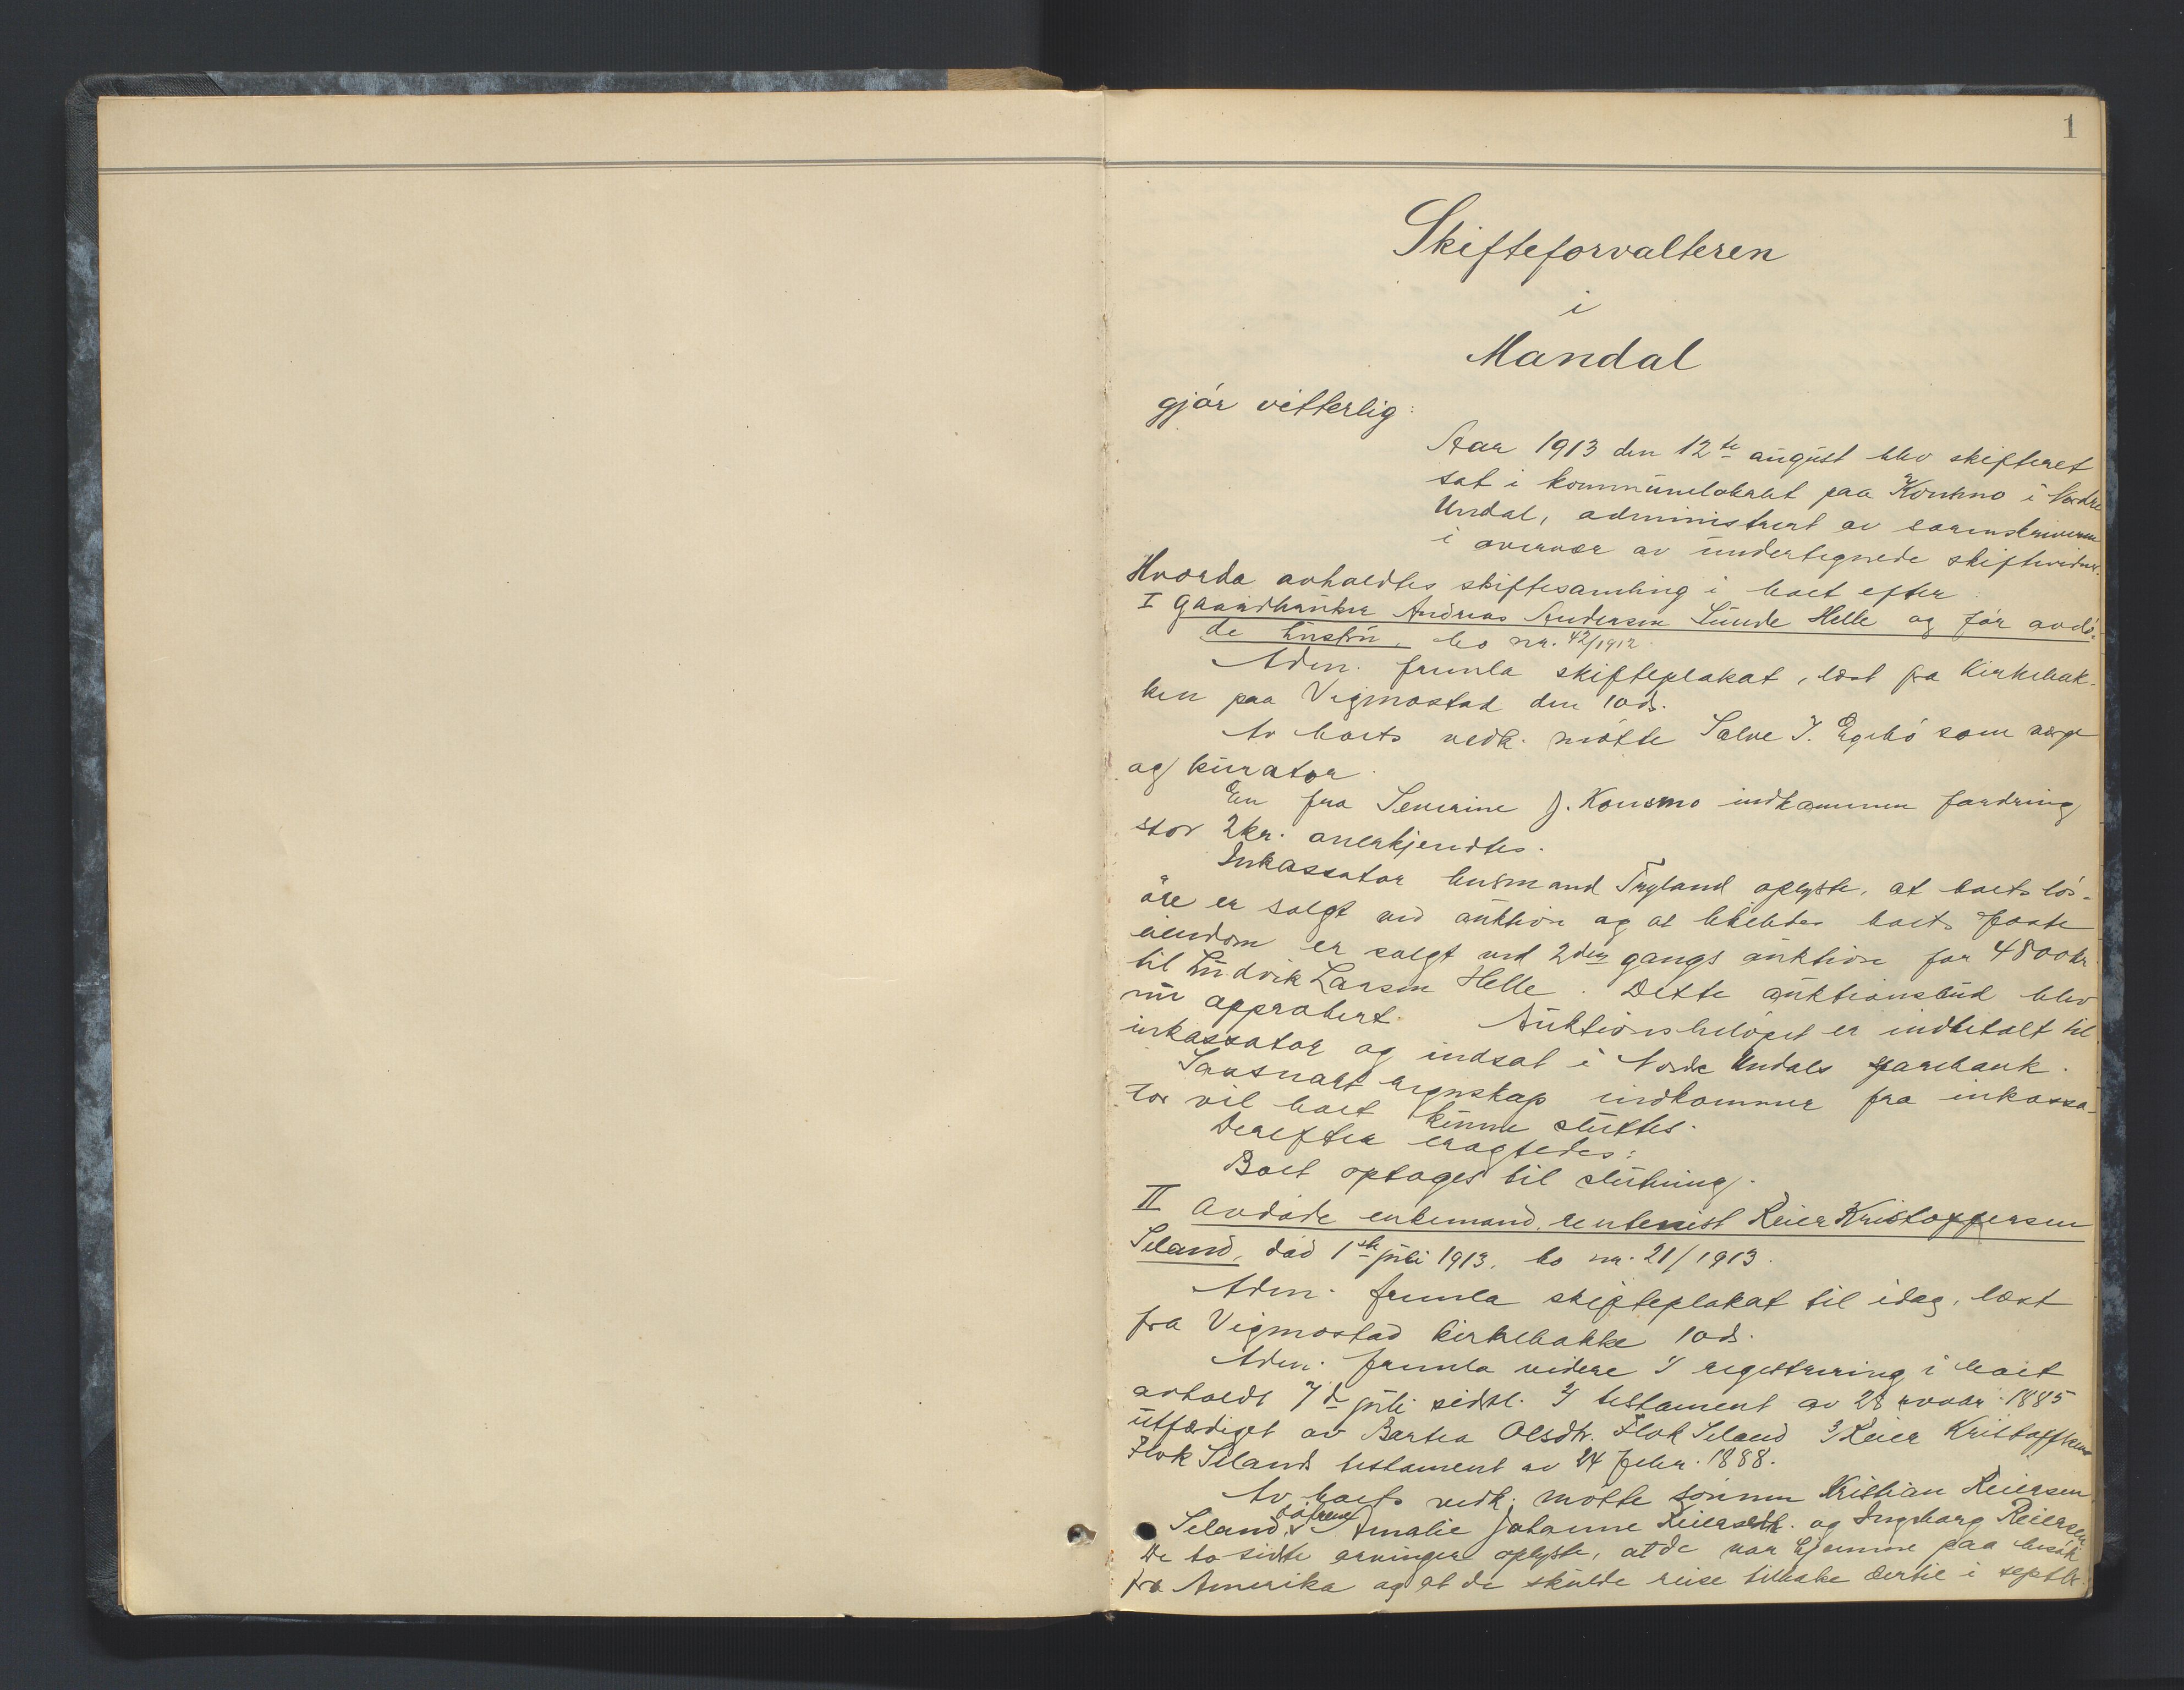 1
Skifteforvalteren
i
Mandal
gjør vitterlig:
Aar 1913 den 12te august blev skifteret
sat i kommunelokalet paa Konsmo i Nordre
Undal, administrert av sorenskriveren
i overvær av undertegnede skiftevidner.
Hvorda avholdtes skiftesamling i boet efter:
I Gaardbruker Andreas Andersen Lunde Helle og før avdø-
de hustru, bo nr. 42/1912.
Adm. fremla skifteplakat, læst fra kirkebak-
ken paa Vigmostad den 10 ds.
Av boets vedk. møtte Salve T. Egebø som verge
og kurator.
En fra Severine J. Konsmo indkommen fordring
stor 2 kr. anerkjendtes.
Inkassator lensmand Tryland oplyste, at boets løs-
øre er solgt ved auktion og at likeledes boets faste
eiendom er solgt ved 2den gangs auktion for 4800 kr
til Ludvik Larsen Helle. Dette auktionsbud blev
nu approbert. Auktionsbeløpet er indbetalt til
inkassator og indsat i Nordre Undals sparebank.
Saasnart regnskap indkommer fra inkassa-
tor vil boet kunne sluttes.
Derefter eragtedes:
Boet optages til slutning.
II Avdøde enkemand, rentenist Reier Kristoffersen
Seland, død 1ste juli 1913. bo nr. 21/1913.
Adm. fremla skifteplakat til idag, læst
fra Vigmostad kirkebakke 10 ds.
Adm. fremla videre 1/ registrering i boet
avholdt 7de juli sidstl. 2/ testament av 28 1885
utfærdiget av Bertea Olsdtr. Flok Seland 3/ Reier Kristoffersens
Flok Seland testament av 24 febr. 1888.
Av boets vedk. møtte sønnen Kristian Reiersen
Seland, døtrene Amalie Johanne Reiersdtr. og Ingeborg Reiersen
De to sidste arvinger oplyste, at de var hjemme paa besøk
fra Amerika og at de skulde reise tilbake dertil i septbr.